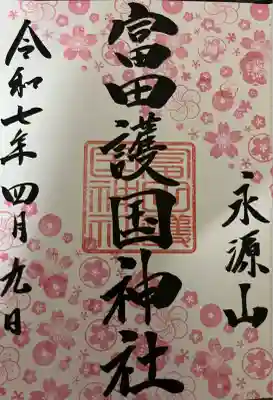 永源山
富田護国神社
令和七年四月九日